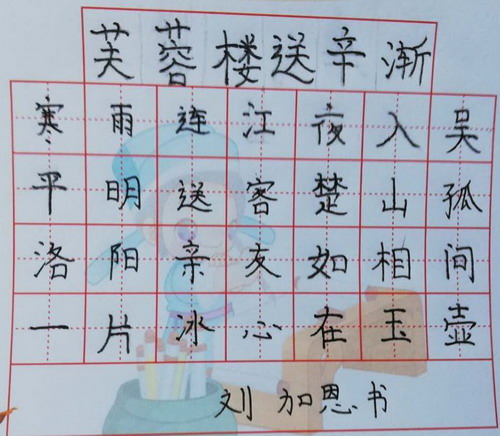 芙蓉楼送辛渐
寒雨连江夜入吴
平明送客楚山孤
洛阳亲友如相问
一片冰心在玉壶
刘加恩书